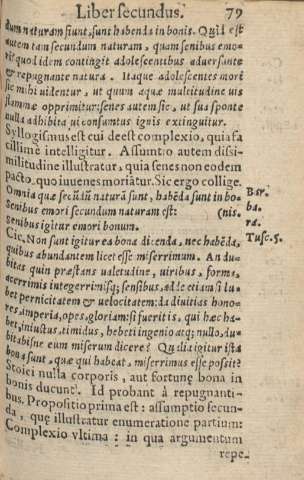 Liber secundus. 79
dum naturam fiunt, sunt habenda in bonis. Quid est
autem tam secundum naturam, quam senibus emo-
ri? quod idem contingit adolescentibus adversante
& repugnante natura. Itaque adolescentes mori
sic mihi videntur, ut quum aquæ multitudine vis
flammæ opprimitur: senes autem sic, ut sua sponte
nulla adhibita vi consumtus ignis extinguitur.
Syllogismus est cui deest complexio, quia fa
cillimè intelligitur. Assumtio autem dissi-
militudine illustratur, quia senes non eodem
pacto, quo iuuenes moriãtur. Sic ergo collige.
Omnia quæ secũdũ naturã sunt, habẽda sunt in bo-
Senibus emori secundum naturam est: (nis.
senibus igitur emori bonum.
Bar.
ba.
ra.
Cic. Non sunt igitur ea bona dicenda, nec habẽda,
Tusc. 5.
quibus abundantem licet esse miserrimum. An du-
bitas quin præstans valetudine, viribus, forma,
acerrimis integerrimisq; sensibus, adde etiam si lu-
bet pernicitatem & velocitatem: da divitias hono-
res, imperia, opes, gloriam: si fuerit is, qui hæc ha-
bet, iniustus, timidus, hebeti ingenio atq; nullo, du-
bitabisne eum miserum dicere? Qualia igitur ista
bona sunt, quæ qui habeat, miserrimus esse possit?
Stoici nulla corporis, aut fortunę bona in
bonis ducunt. Id probant à repugnanti-
bus. Propositio prima est: assumptio secun-
da, quę illustratur enumeratione partium:
Complexio vltima: in qua argumentum
repe-